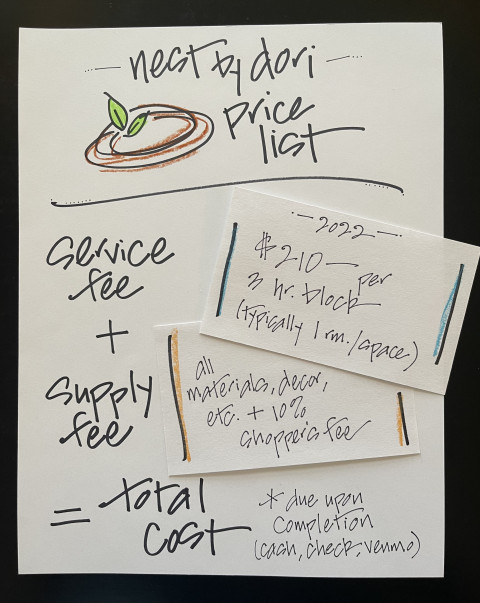 nest by dori
price
list
service
fee
+
supply
fee
= total
cost
2022
$210 — per
3 hr. block
(typically 1 rm./space)
all
materials, decor,
etc. + 10%
shopper's fee
* due upon
completion
(cash, check, venmo)